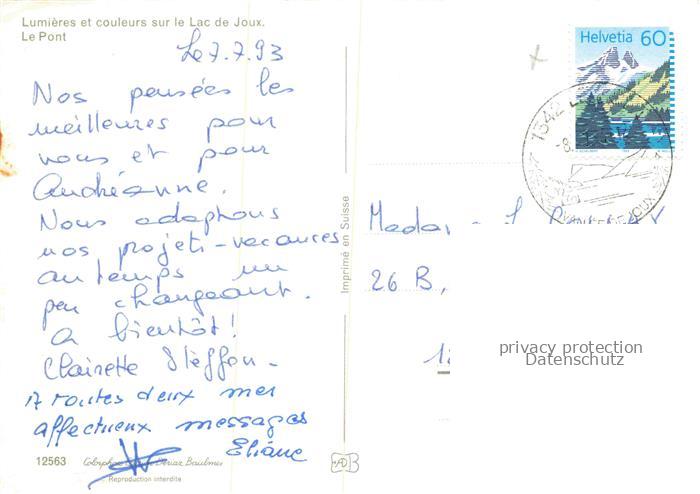 Lumières et couleurs sur le Lac de Joux.
Le Pont
Le 7.7.93
Nos pensées les
meilleures pour
vous et pour
Andréanne.
Nous adaptons
nos projets-vacances
au temps un
peu changeant.
A bientôt!
Clairette Steffen -
A toutes deux mes
affectueux messages
Eliane
12563
Dériaz Baulmes
Reproduction interdite
Imprimé en Suisse
Helvetia 60
1342
DE JOUX
Madame
26 B,
privacy protection
Datenschutz